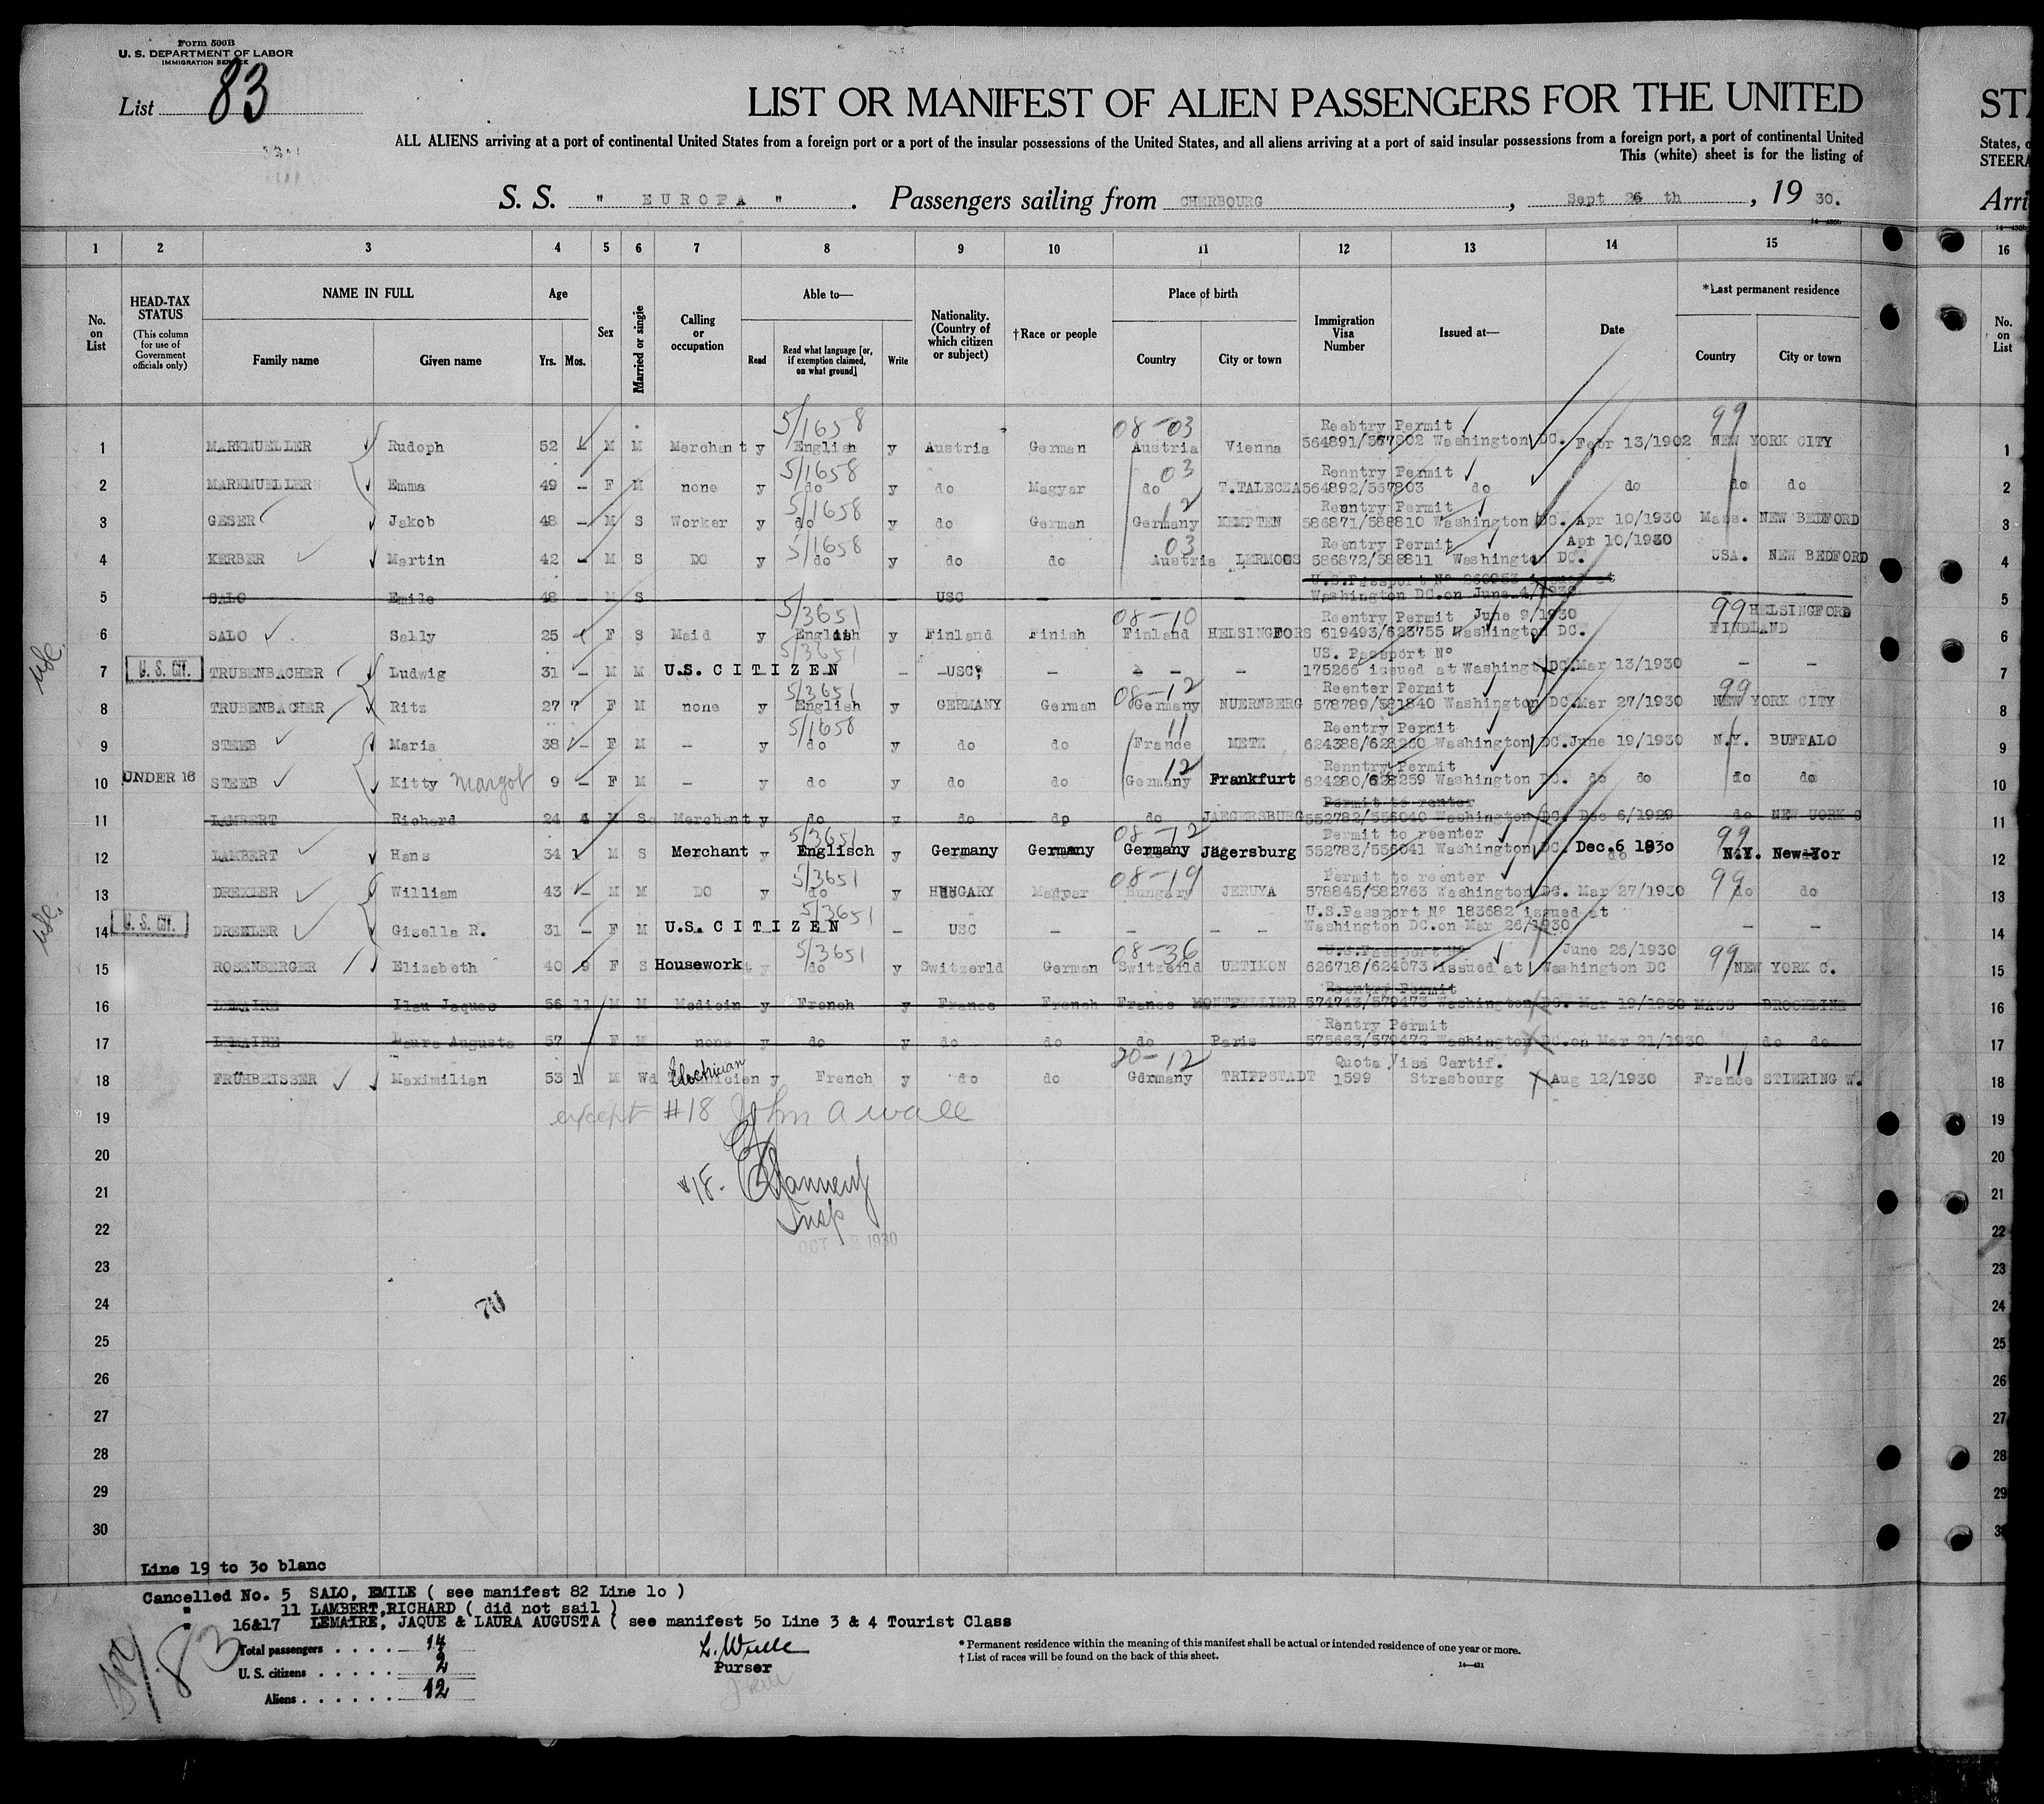 Form 500B
U. S. DEPARTMENT OF LABOR
IMMIGRATION SERVICE
List 83
LIST OR MANIFEST OF ALIEN PASSENGERS FOR THE UNITED
ST
ALL ALIENS arriving at a port of continental United States from a foreign port or a port of the insular possessions of the United States, and all aliens arriving at a port of said insular possessions from a foreign port, a port of continental United
States, o
This (white) sheet is for the listing of
STEERA
S. S. " EUROPA " . Passengers sailing from CHERBOURG , Sept 26 th , 19 30.
Arri
14—430b
1 2 3 4 5 6 7 8 9 10 11 12 13 14 15 16
No. on List
HEAD-TAX STATUS
(This column for use of Government officials only)
NAME IN FULL
Family name Given name
Age
Yrs. Mos.
Sex
Married or single
Calling or occupation
Able to—
Read
Read what language [or, if exemption claimed, on what ground]
Write
Nationality. (Country of which citizen or subject)
†Race or people
Place of birth
Country City or town
Immigration Visa Number
Issued at—
Date
*Last permanent residence
Country City or town
No. on List
5/1658 08-03 Reebtry Permit 99
1 MARKMUELLER Rudoph 52 M M Merchant y English y Austria German Austria Vienna 564891/567802 Washington DC. Febr 13/1902 NEW YORK CITY 1
5/1658 03 Renntry Permit
2 MARKMUELLER Emma 49 – F M none y do y do Magyar do T.TALECZA 564892/567803 do do do do 2
5/1658 12 Renntry Permit
3 GESER Jakob 48 – M S Worker y do y do German Germany KEMPTEN 586871/588810 Washington DC. Apr 10/1930 Mass. NEW BEDFORD 3
5/1658 03 Reentry Permit Apr 10/1930
4 KERBER Martin 42 – M S DO y do y do do Austria LERMOOS 586872/588811 Washington DC. USA. NEW BEDFORD 4
U.S.Passport Nº issued at
5 SALO Emile 48 – M S – – – USC – – – Washington DC.on June 4/1930 5
5/3651 08-10 Reentry Permit June 9/1930 99 HELSINGFORD
6 SALO Sally 25 F S Maid y English y Finland Finish Finland HELSINGFORS 619493/623755 Washington DC. FINDLAND 6
5/3651 US. Passport Nº
7 U. S. Cit. TRUBENBACHER Ludwig 31 – M M U.S. CITIZEN – USC – – – – 175266 issued at Washingt DC. Mar 13/1930 – – 7
5/3651 08-12 Reenter Permit 99
8 TRUBENBACHER Ritz 27 7 F M none y English y GERMANY German Germany NUERNBERG 578789/581840 Washington DC. Mar 27/1930 NEW YORK CITY 8
5/1658 11 Reentry Permit
9 STEEB Maria 38 – F M – y do y do do France METZ 624388/628260 Washington DC. June 19/1930 N.Y. BUFFALO 9
12 Renntry Permit
10 UNDER 16 STEEB Kitty Margot 9 – F M – y do y do do Germany Frankfurt 624280/628259 Washington DC. do do do do 10
Permit to renter
11 LAMBERT Richard 24 4 M S Merchant y do y do dp do JAEGERSBURG 552782/556040 Washington DC. Dec 6/1929 do NEW YORK C 11
5/3651 08-12 Permit to reenter 99
12 LAMBERT Hans 34 1 M S Merchant y Englisch y Germany Germany Germany Jägersburg 552783/556041 Washington DC. Dec.6 1930 N.Y. New-Yor 12
5/3651 08-19 Permit to reenter 99
13 DREXLER William 43 – M M DO y do y HUNGARY Magyar Hungary JERUYA 578845/582763 Washington DC. Mar 27/1930 do do 13
5/3651 U.S.Passport Nº 183682 issued at
14 U. S. Cit. DREXLER Gisella R. 31 – F M U.S. CITIZEN – USC – – – – Washington DC.on Mar 26/1930 – – 14
5/3651 08-36 U.S.Passport Nº June 26/1930 99
15 ROSENBERGER Elizabeth 40 9 F S Housework y do y Switzerld German Switzerld UETIKON 626718/624073 issued at Washington DC NEW YORK C. 15
Reentry Permit
16 LEMAIRE Jaques 56 11 M M Medicin y French y France French France MONTPELLIER 574743/579473 Washington DC. Mar 19/1930 MASS BROOKLINE 16
Rentry Permit
17 LEMAIRE Laura Augusta 57 – F M none y do y do do do Paris 575663/579472 Washington DC.on Mar 21/1930 do do 17
Electrician 20-12 Quota Visa Certif. 11
18 FRÜHBEISSER Maximilian 53 1 M Wd y French y do do Germany TRIPPSTADT 1599 Strasbourg Aug 12/1930 France STIERING W. 18
19 except #18 John A Wall 19
20 20
21 #18. 21
22 Insp 22
OCT 1930
23 23
24 24
25 25
26 26
27 27
28 28
29 29
30 3
Line 19 to 30 blanc
Cancelled No. 5 SALO, EMILE ( see manifest 82 Line 10 )
" 11 LAMBERT,RICHARD ( did not sail )
" 16&17 LEMAIRE, JAQUE & LAURA AUGUSTA ( see manifest 50 Line 3 & 4 Tourist Class
83
Total passengers . . . . . 14
U. S. citizens . . . . . 2
Aliens . . . . . . 12
L. Wulle
Purser
* Permanent residence within the meaning of this manifest shall be actual or intended residence of one year or more.
† List of races will be found on the back of this sheet.
14—431